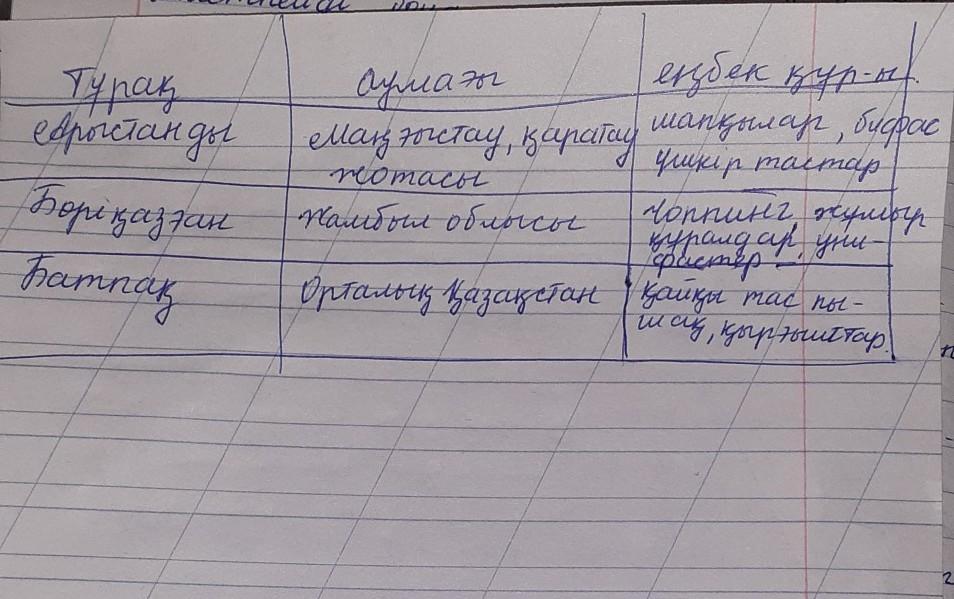 Тұрақ аумағы еңбек құр-ы.
Арыстанды Маңғыстау, қаратау шапқылар, бифас
жотасы үшкір тастар
Бөріқазған Жамбыл облысы Чоппинг, жұмыр
құралдар, уни-
фастер
Батпақ Орталық Қазақстан қайқы тас пы-
шақ, қырғыштар.